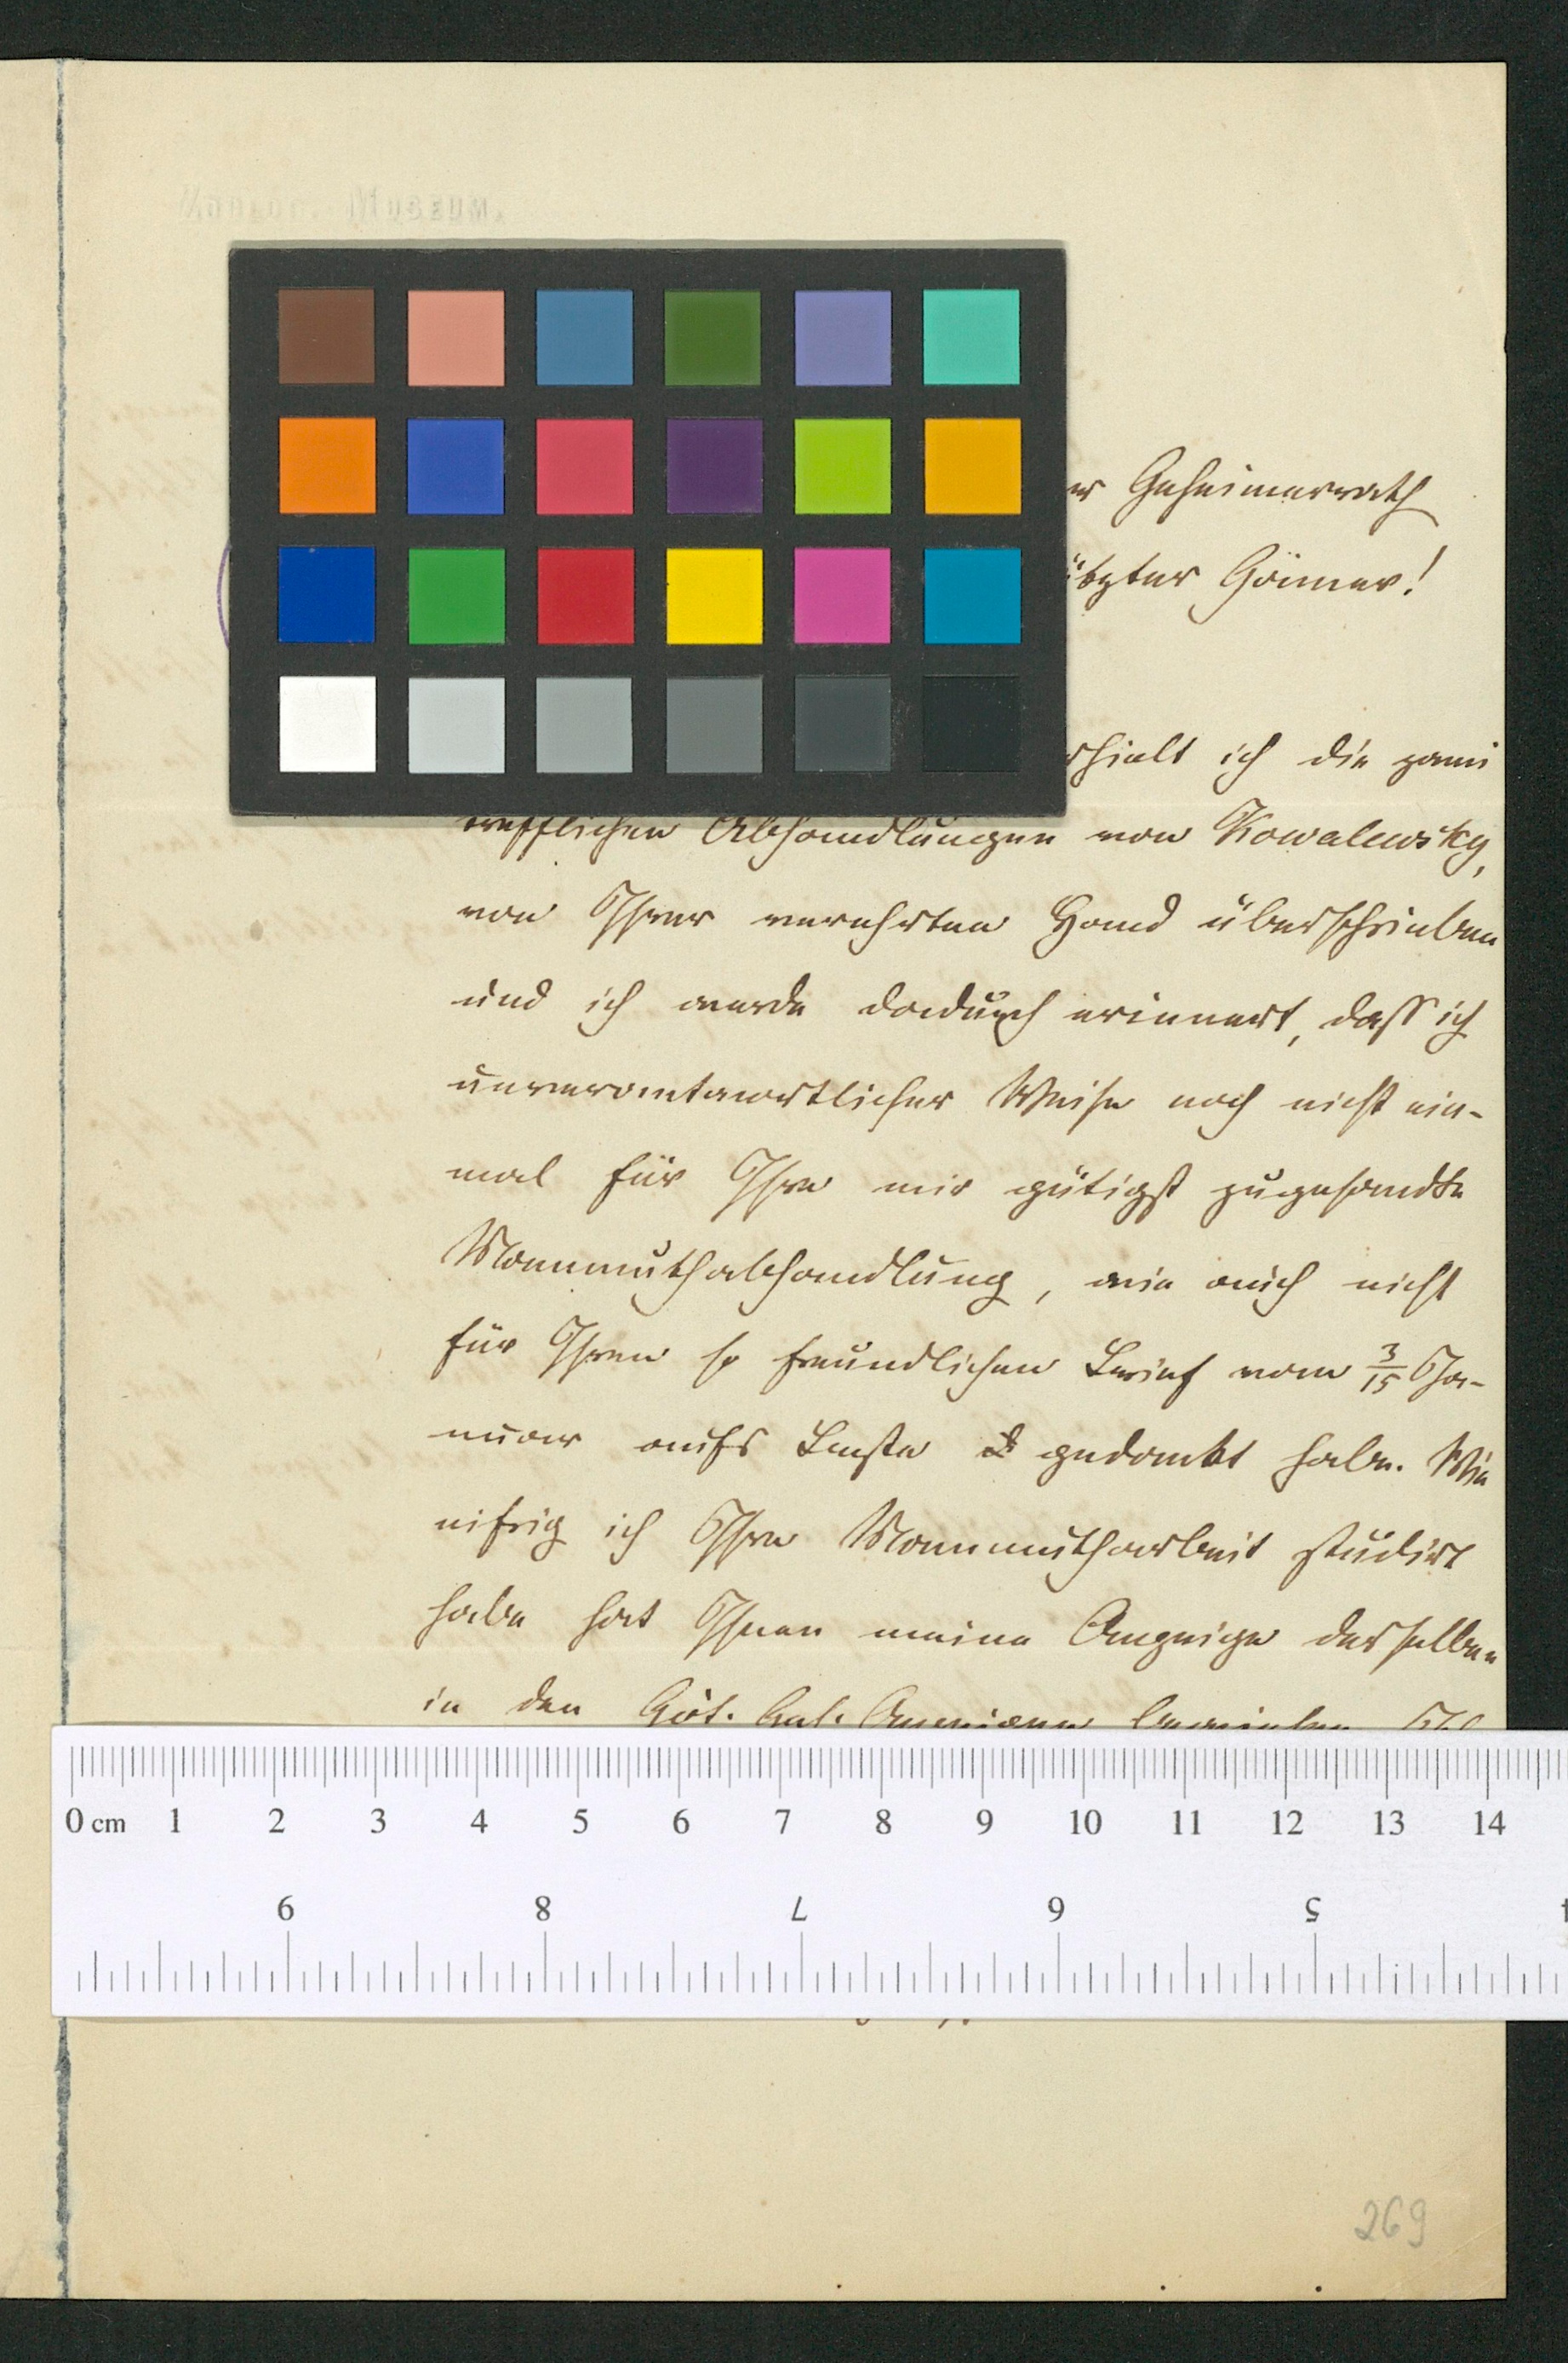 Zoolog. Museum.
Geheimerrath
Gönner!
ich die zwei
trefflichen Abhandlungen von Kowalewsky,
von Ihrer verehrten Hand überschrieben
und ich werde dadurch erinnert, dass ich
unverantwortlicher Weise noch nicht ein-
mal für Ihre mir gütigst zugesandte
Mammuthabhandlung, wie auch nicht
für Ihren so freundlichen Brief vom 3/15 Ja-
nuar aufs Beste gedankt habe. Wie
eifrig ich Ihre Mammutharbeit studirt
habe hat Ihnen meine Anzeige derselben
in den Göt. Gel. Anzeigen bewiesen
0 cm 1 2 3 4 5 6 7 8 9 10 11 12 13 14
9 8 7 6 5
269